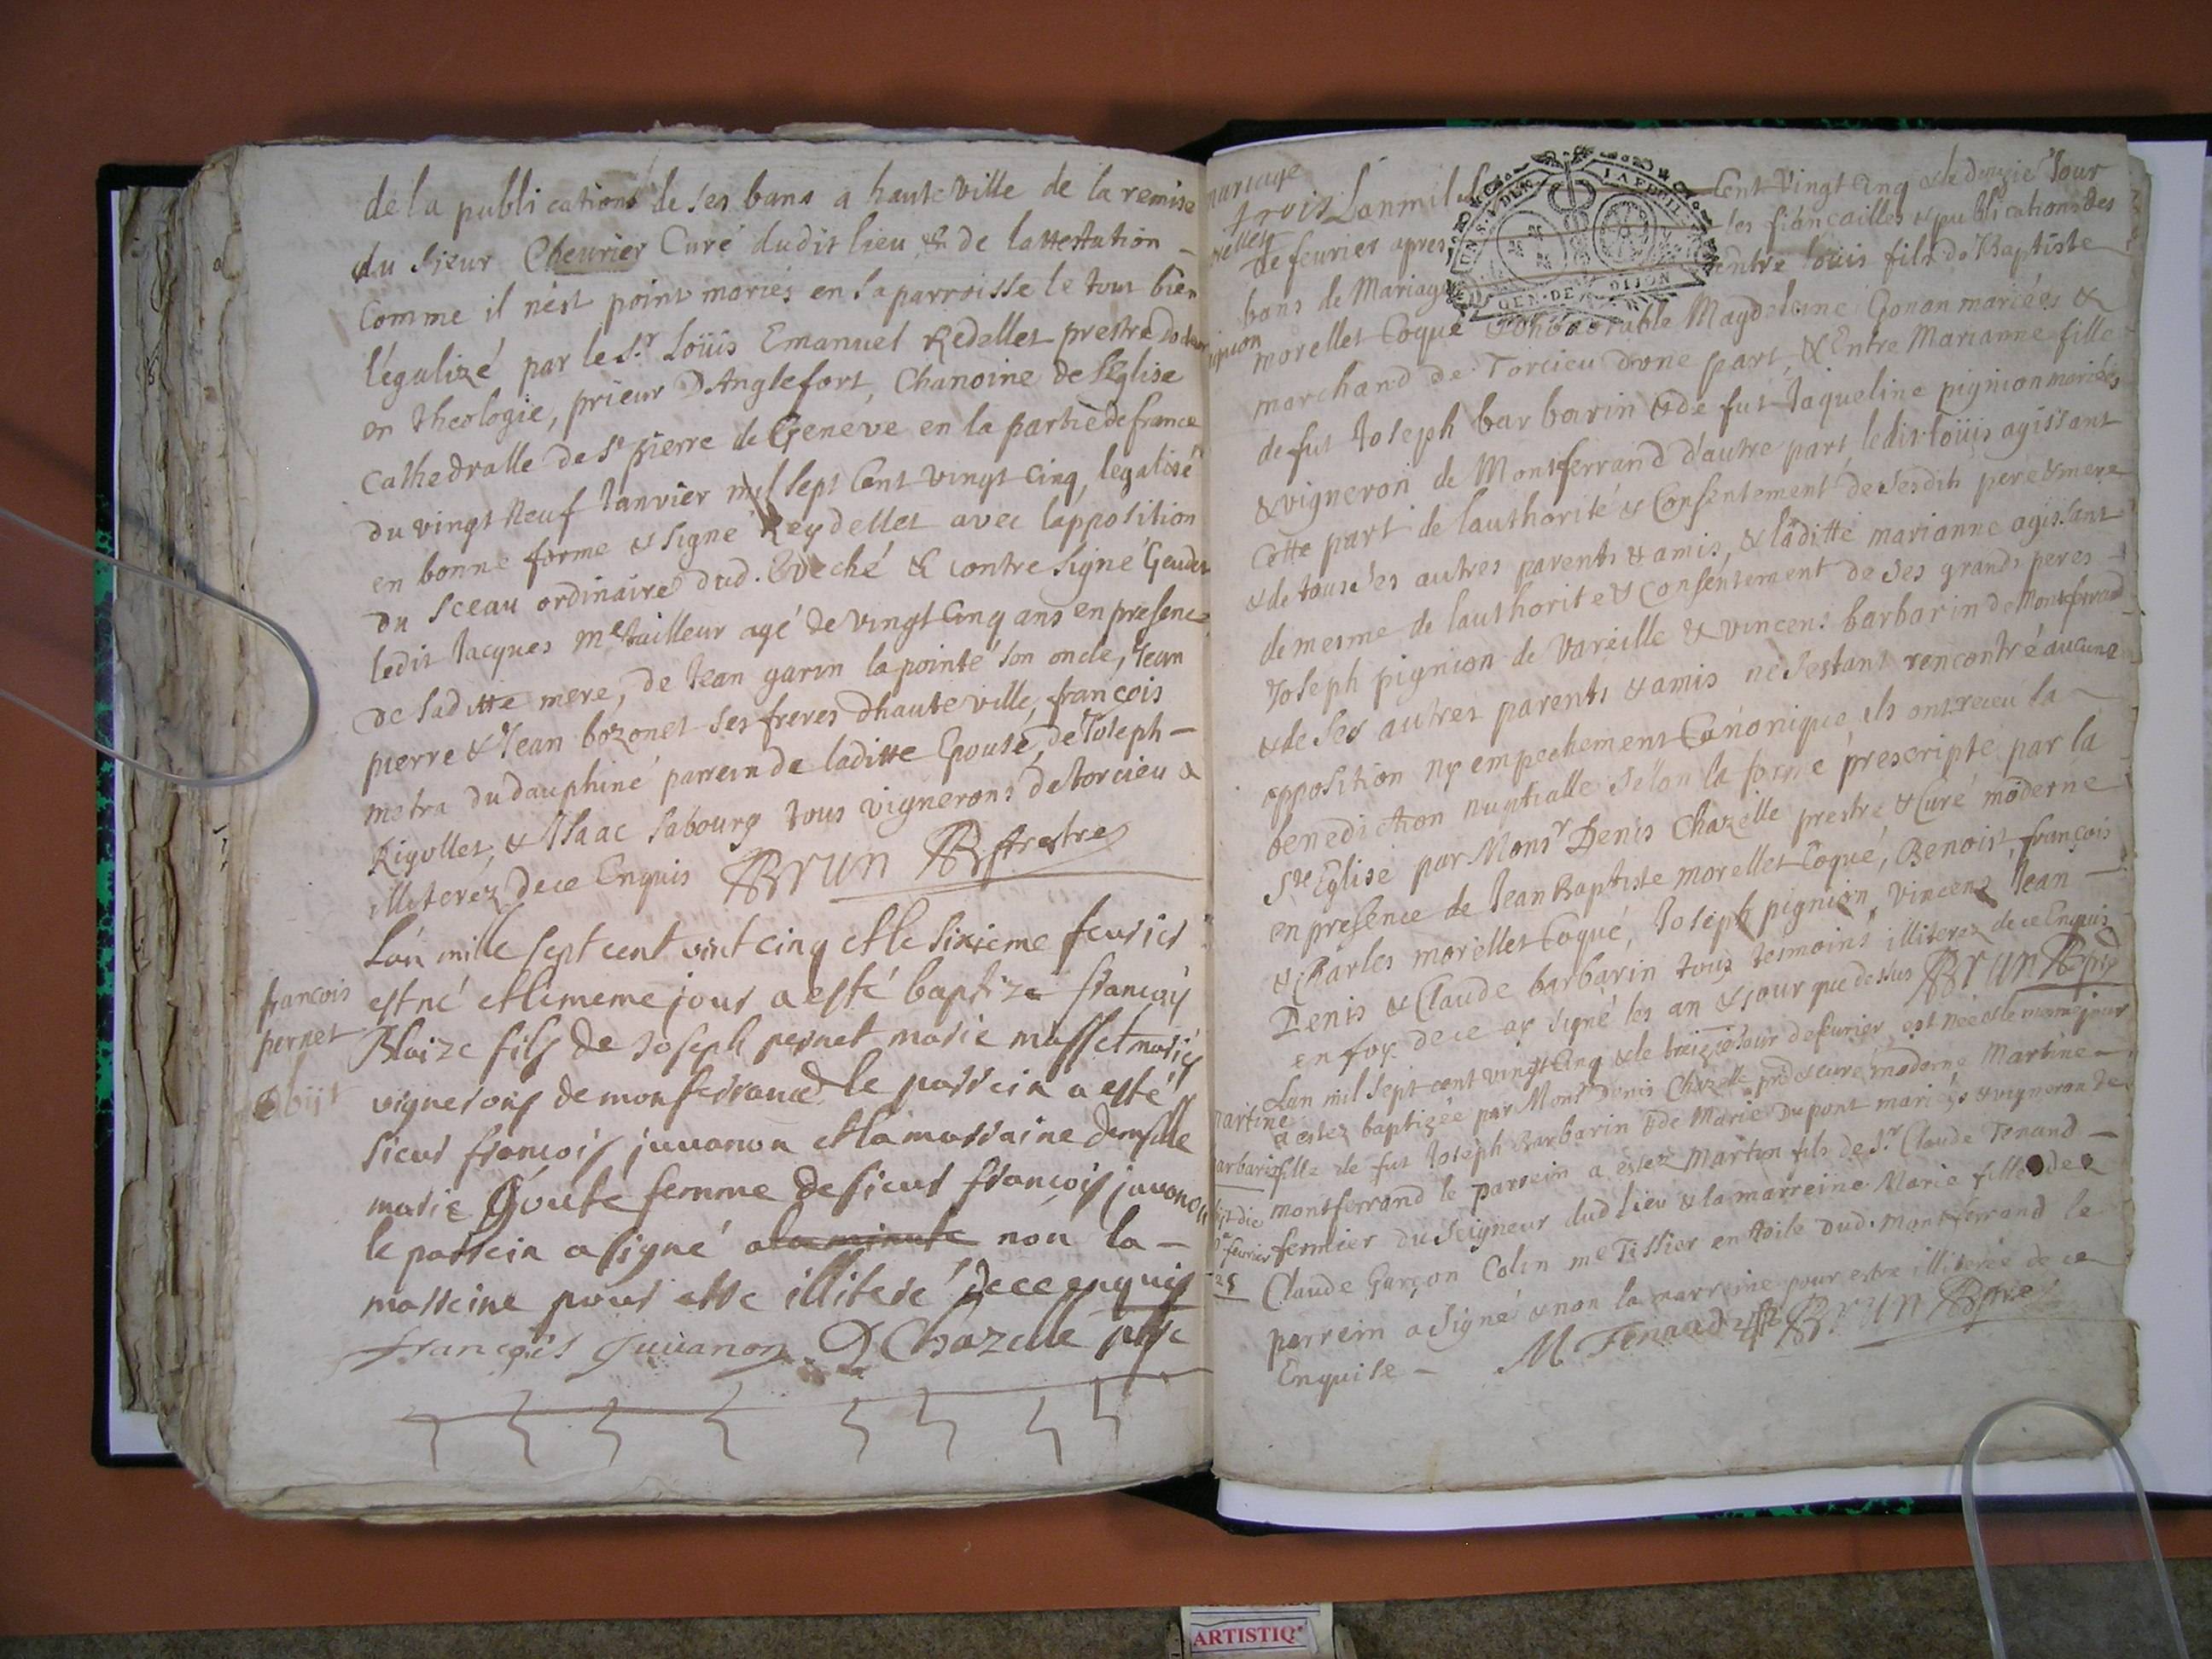 de la publications de ses bans a hauteville de la remise
du sieur Cheurier Curé dudit lieu & de lattestation -
Comme il nest point mariés en sa parroisse le tout bien
légalizé par le Sr. Loüis Emanuel Redellet prestre docteur
en theologie, prieur D'Anglefort, Chanoine de l'Eglise
Cathedralle de St pierre de Geneve en la partie de france
du vingt neuf Janvier mil sept Cent vingt Cinq, legalisé
en bonne forme & signé Reydellet avec lapposition
du Sceau ordinaire dud. Eveché & contre signé
ledit Jacques Me tailleur agé de vingt Cinq ans en presence
de saditte mere, de Jean garin la pointe son oncle, Jean
pierre & Jean bozonet ses freres dhauteville, françois
metra du dauphiné parrein de laditte Epouse, de Joseph -
Rigollet, & Isaac Sabourg tous vignerons de torcieu &
illiterez de ce Enquis BRUN prestre
françois
pernet
obijt
Lan mille sept cent vint cinq et le sixieme feurier
est né et le meme jour a esté baptizé françois
Blaize fils de Joseph pernet marie masset mariés
vignerons de monferrand le parrein a esté
sieur françois juvanon et la marraine demselle
marie Goute femme de sieur françois juvanon
le parrein a signé a la minute non la -
marreine pour estre illiteré de ce enquis
françois Juuanon D Chazelle ptre
mariage
trois
Lan mil
Cent Vingt Cinq & le douzie Jour
de feurier apres
les fiançailles & publications des
bans de Mariage
entre loüis fils de Baptiste
GEN. DE DIJON
morellet Coque & honnorable Magdeleine Gonan mariées &
marchand de Torcieu d'one part, & Entre Marianne fille
de fut Joseph barbarin & de fut Jaqueline pignion mariées
& vigneron de Montferrand d'autre part, ledit loüis agissant
Cette part de lauthorité & Consentement de sesdits pere & mere
& de tous ses autres parents & amis, & laditte marianne agissant
de mesme de lauthorité & Consentement de ses grands peres -
Joseph pignion de Vareille & vincent barbarin de Montferrand
& de ses autres parents & amis ne s'estant rencontré aucune
opposition ny empechement Canonique, ils ont receu la -
benediction nuptialle selon la forme prescripte par la
Ste Eglise par Monsr Denis Chazelle prestre & Curé moderne
en presence de Jean Baptiste morellet Coqué, Benoist, françois
& Charles morellet Coqué, Joseph pignion, vincent, Jean -
Denis & Claude barbarin tous tesmoins illiterez de ce Enquis
en foy de ce ay signé les an & jour que dessus BRUN
martine
barbarin
Lan mil sept cent vingt Cinq & le treizie Jour de feurier est née & le mesme jour
a estez baptizée par Monsr Denis Chazelle ptre & curé moderne Martine -
fille de fut Joseph Barbarin & de Marie Dupont mariés & vigneron de
montferrand le parrein a estez Martin fils de Sr. Claude Tenand -
fermier du Seigneur dud lieu & la marreine Marie fille de
Claude Garçon Colin me Tissier en toile dud. montferrand le
parrein a signé & non la marreine pour estre illiterée de ce
Enquise - M Tenand BRUN
ARTISTIQ